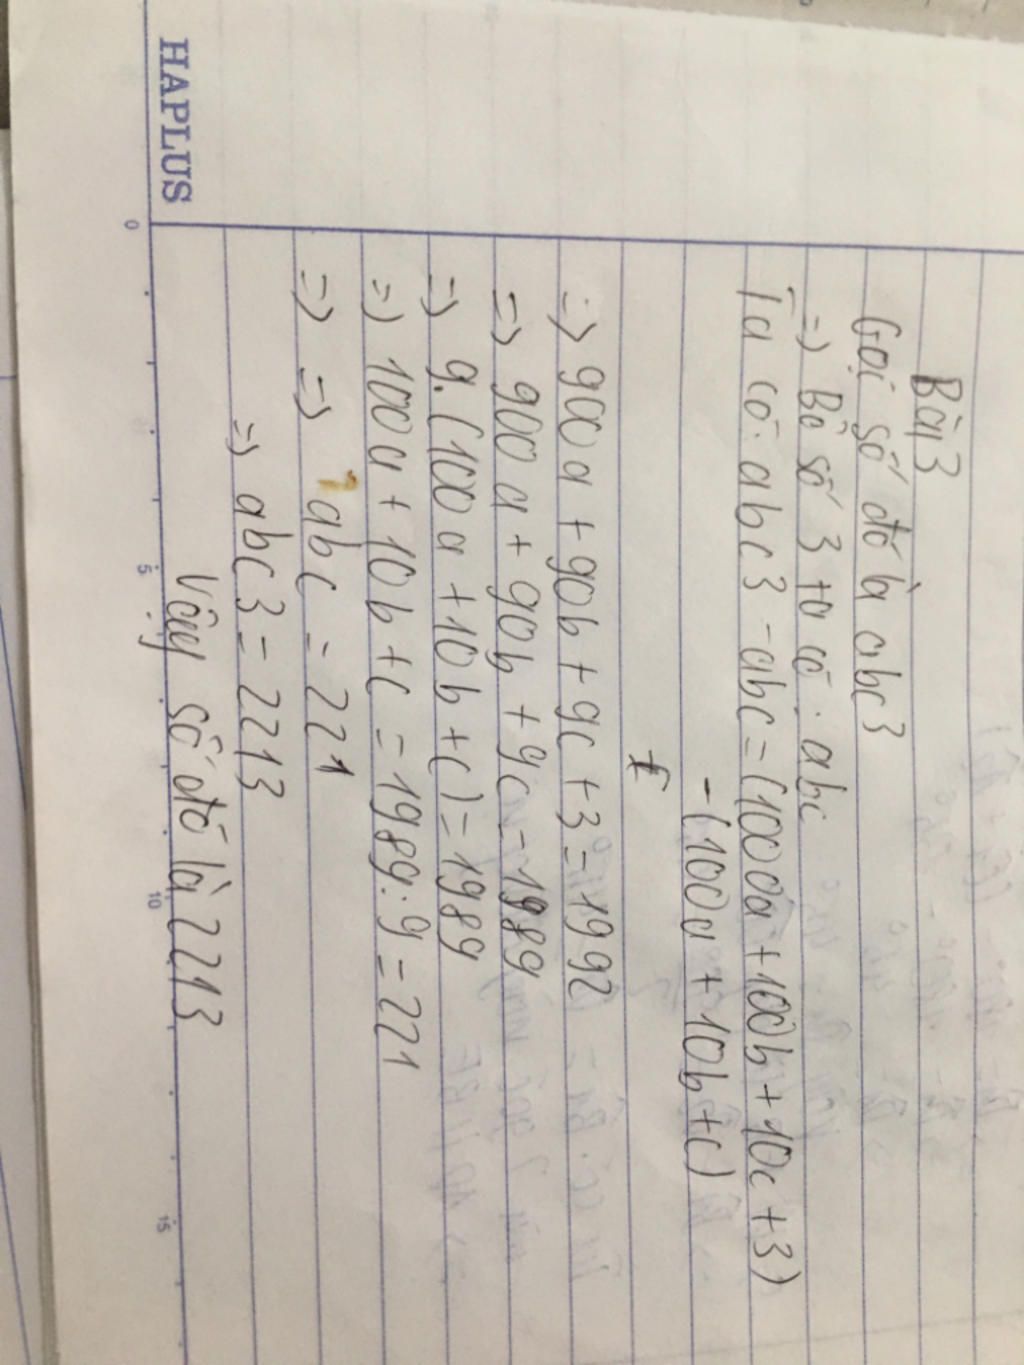 HAPLUS
Bài 3
Gọi số đó là abc3
=) Bỏ số 3 ta có: abc
Ta có: abc3 - abc = (1000a + 100b + 10c + 3)
- (100a + 10b + c)
=) 900a + 90b + 9c + 3 = 1992
=) 900a + 90b + 9c = 1989
=) 9.(100a + 10b + c) = 1989
=) 100a + 10b + c = 1989:9 = 221
=) =) abc = 221
=) abc3 = 2213
Vậy số đó là 2213
0 5 10 15